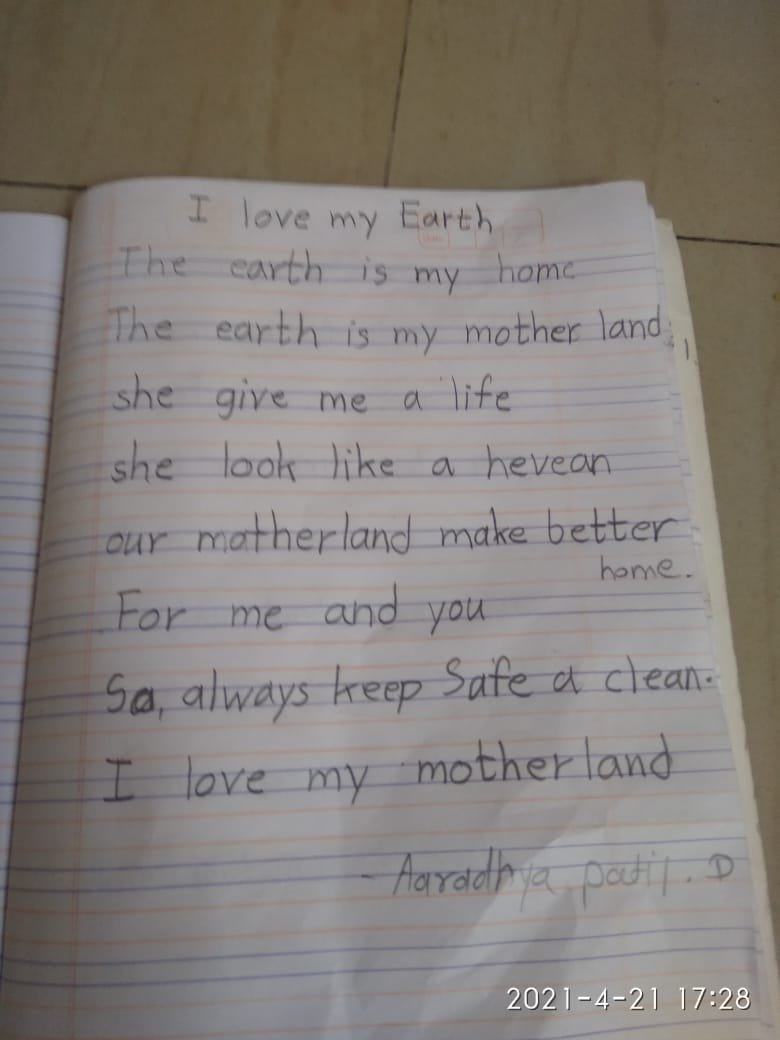 I love my Earth
The earth is my home
The earth is my mother land
she give me a life
she look like a hevean
our matherland make better
home.
For me and you
So, always keep Safe a clean.
I love my motherland
- Aaradhya patil. D
2021-4-21 17:28